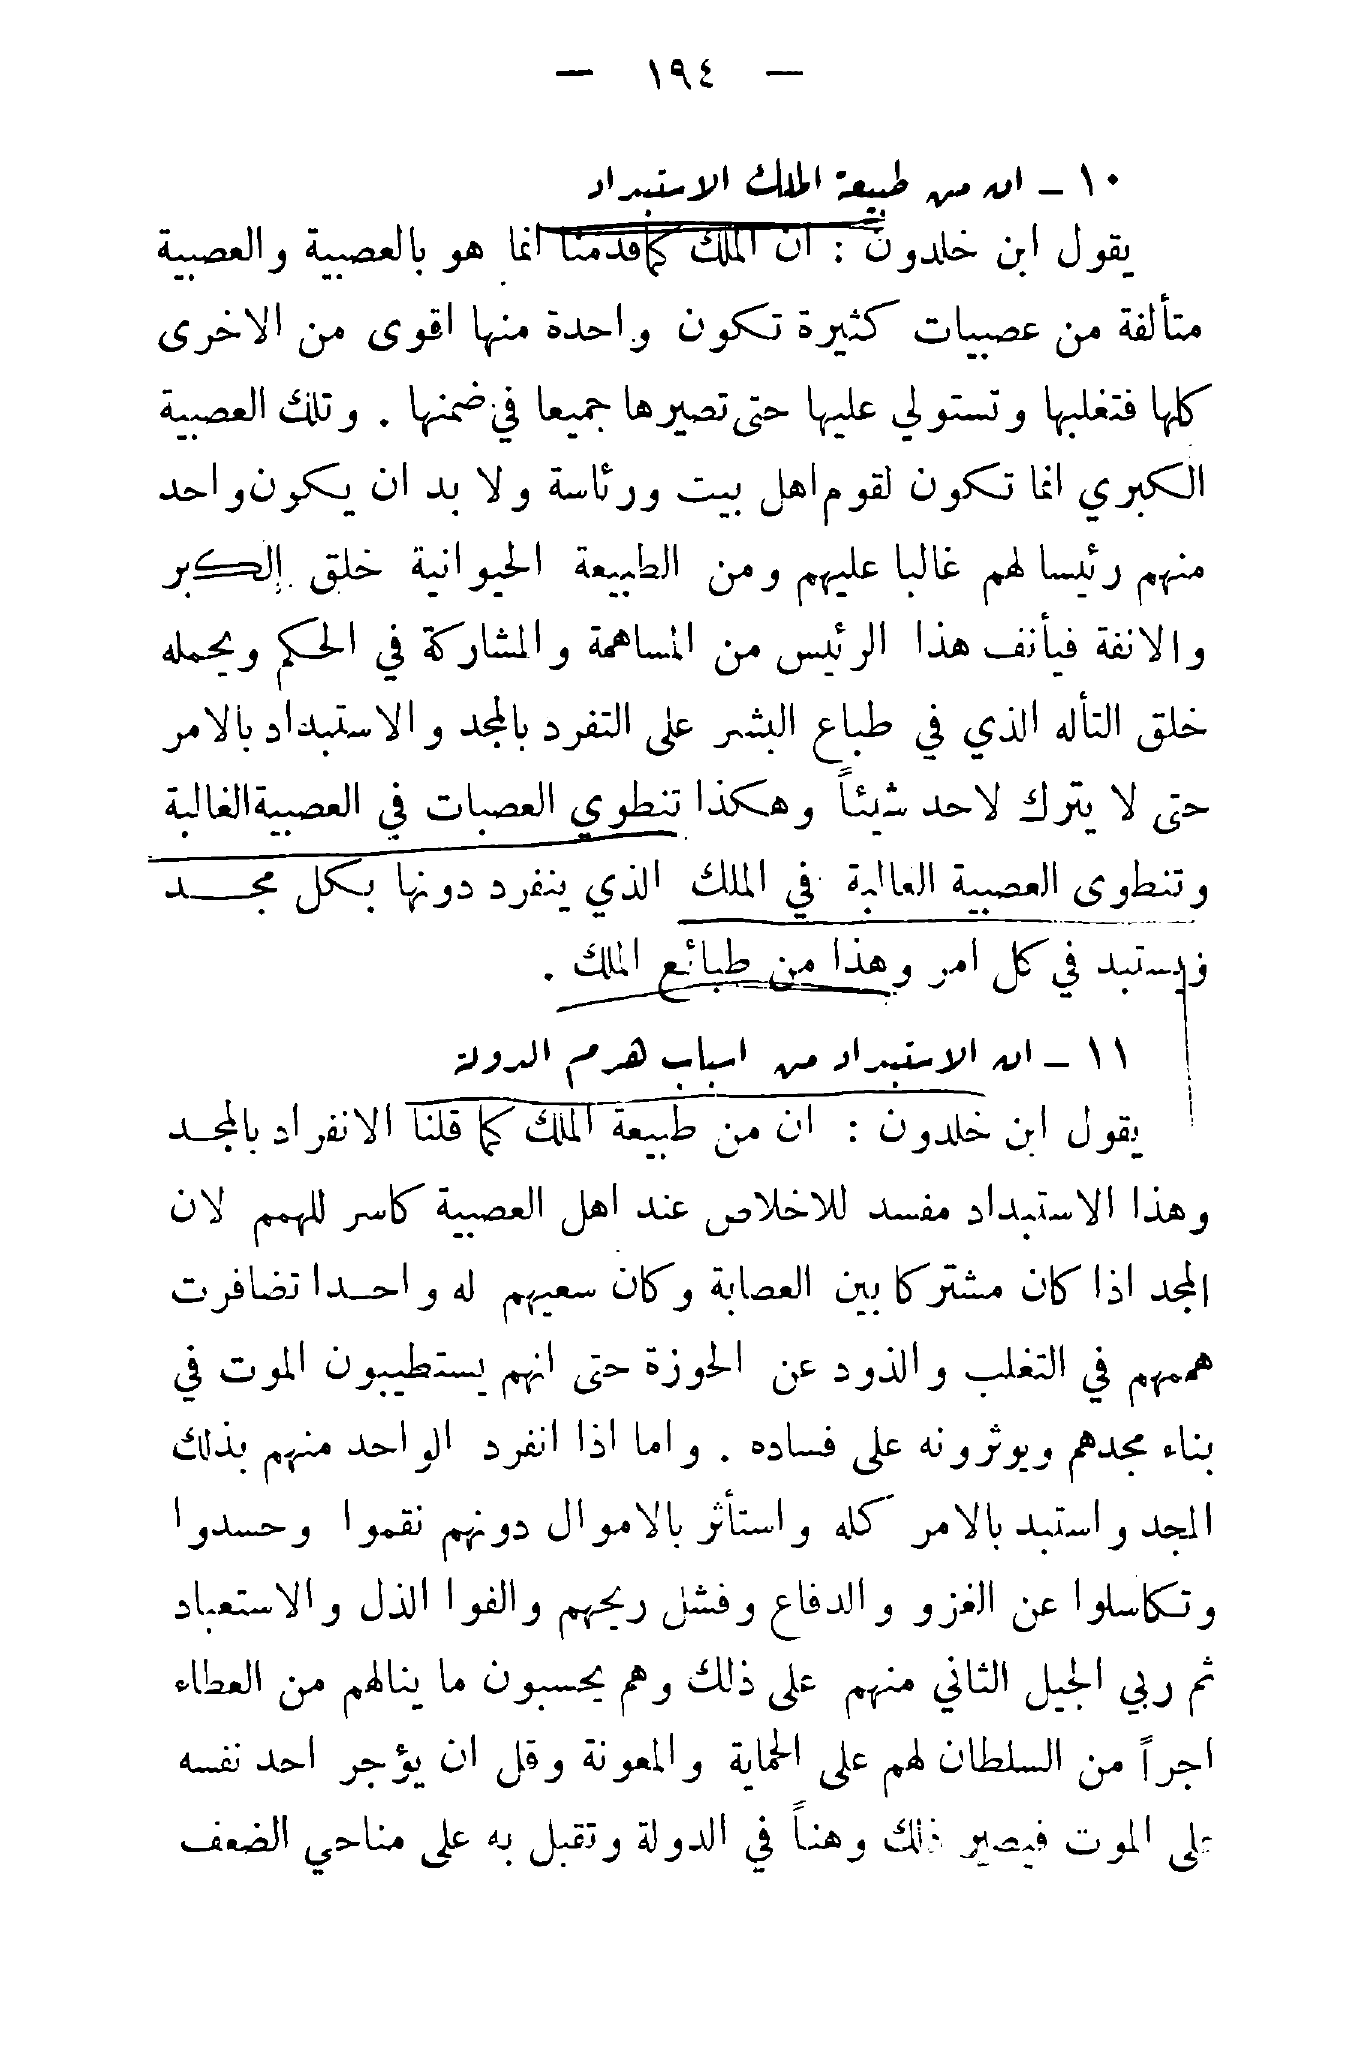 — ١٩٤ —
١٠ — ان من طبيعة الملك الاستبداد
يقول ابن خلدون : ان الملك كما قدمنا انما هو بالعصبية والعصبية
متألفة من عصبيات كثيرة تكون واحدة منها اقوى من الاخرى
كلها فتغلبها وتستولي عليها حتى تصيرها جميعا في ضمنها . وتلك العصبية
الكبري انما تكون لقوم اهل بيت ورئاسة ولا بد ان يكون واحد
منهم رئيسا لهم غالبا عليهم ومن الطبيعة الحيوانية خلق الكبر
والانفة فيأنف هذا الرئيس من المساهمة والمشاركة في الحكم ويحمله
خلق التأله الذي في طباع البشر على التفرد بالمجد والاستبداد بالامر
حتى لا يترك لاحد شيئاً وهكذا تنطوي العصبات في العصبية الغالبة
وتنطوى العصبية الغالبة في الملك الذي ينفرد دونها بكل مجد
ويستبد في كل امر وهذا من طبائع الملك .
١١ — ان الاستبداد من اسباب هرم الدولة
يقول ابن خلدون : ان من طبيعة الملك كما قلنا الانفراد بالمجد
وهذا الاستبداد مفسد للاخلاص عند اهل العصبية كاسر للهمم لان
المجد اذا كان مشتركا بين العصابة وكان سعيهم له واحدا تضافرت
هممهم في التغلب والذود عن الحوزة حتى انهم يستطيبون الموت في
بناء مجدهم ويوثرونه على فساده . واما اذا انفرد الواحد منهم بذلك
المجد واستبد بالامر كله واستأثر بالاموال دونهم نقموا وحسدوا
وتكاسلوا عن الغزو والدفاع وفشل ريحهم والفوا الذل والاستعباد
ثم ربي الجيل الثاني منهم على ذلك وهم يحسبون ما ينالهم من العطاء
اجراً من السلطان لهم على الحماية والمعونة وقل ان يؤجر احد نفسه
على الموت فيصير ذلك وهناً في الدولة وتقبل به على مناحي الضعف